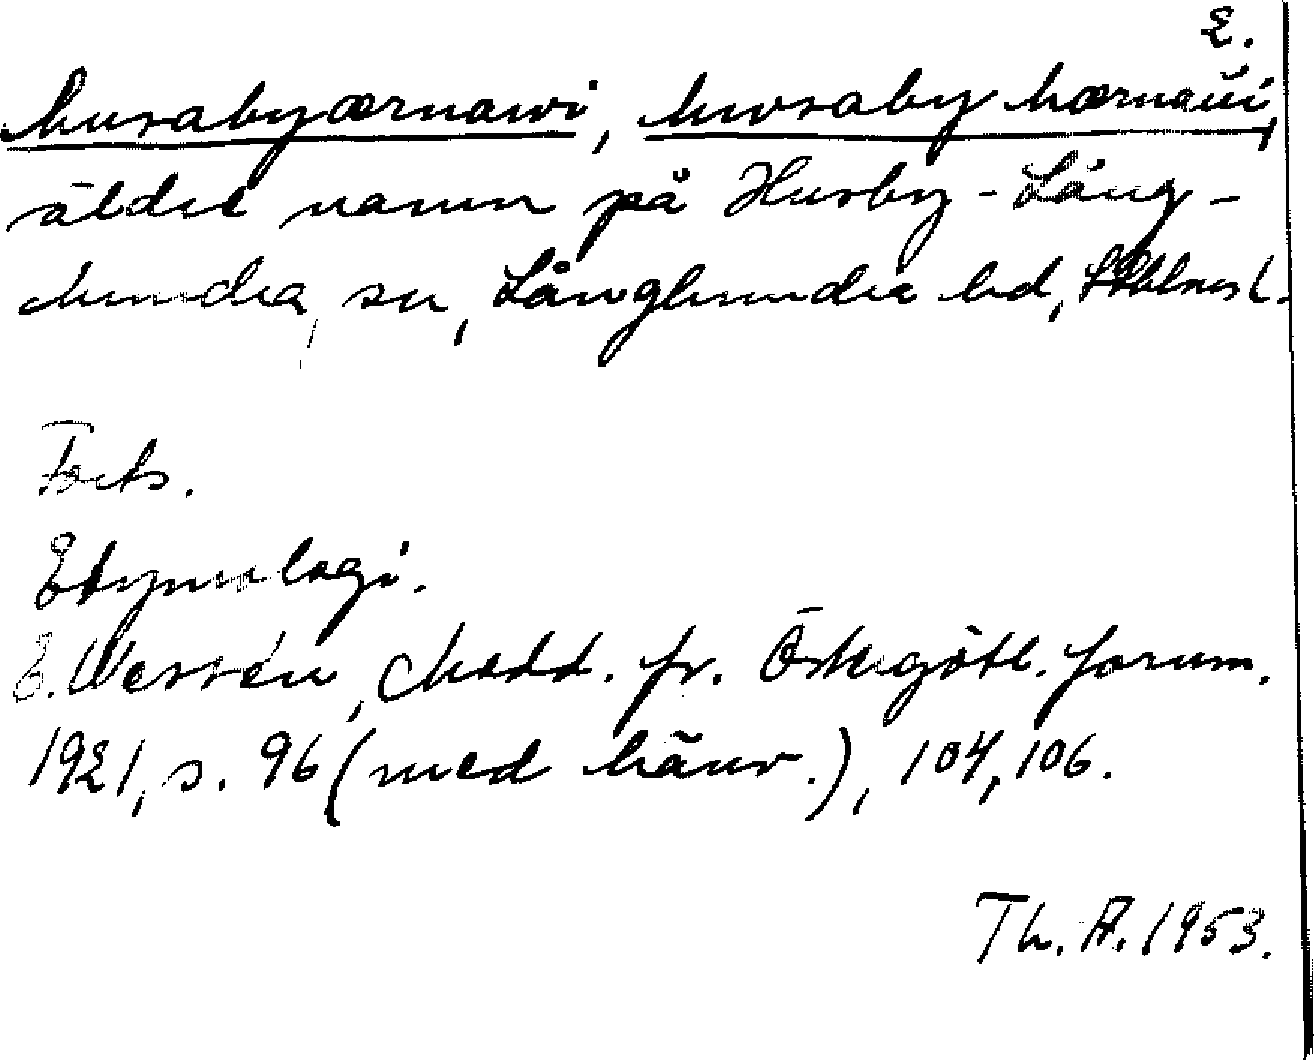 2.
husabyærnawi, hwsaby hærnaui,
äldre namn på Husby-Lång-
hundra, sn, Långhundra hd, Sthlms l.
Forts.
Etymologi.
E. Wessén, Medd. fr. Östergötl. fornm.
1921, s. 96 (med hänv.), 104, 106.
Th. A. 1953.